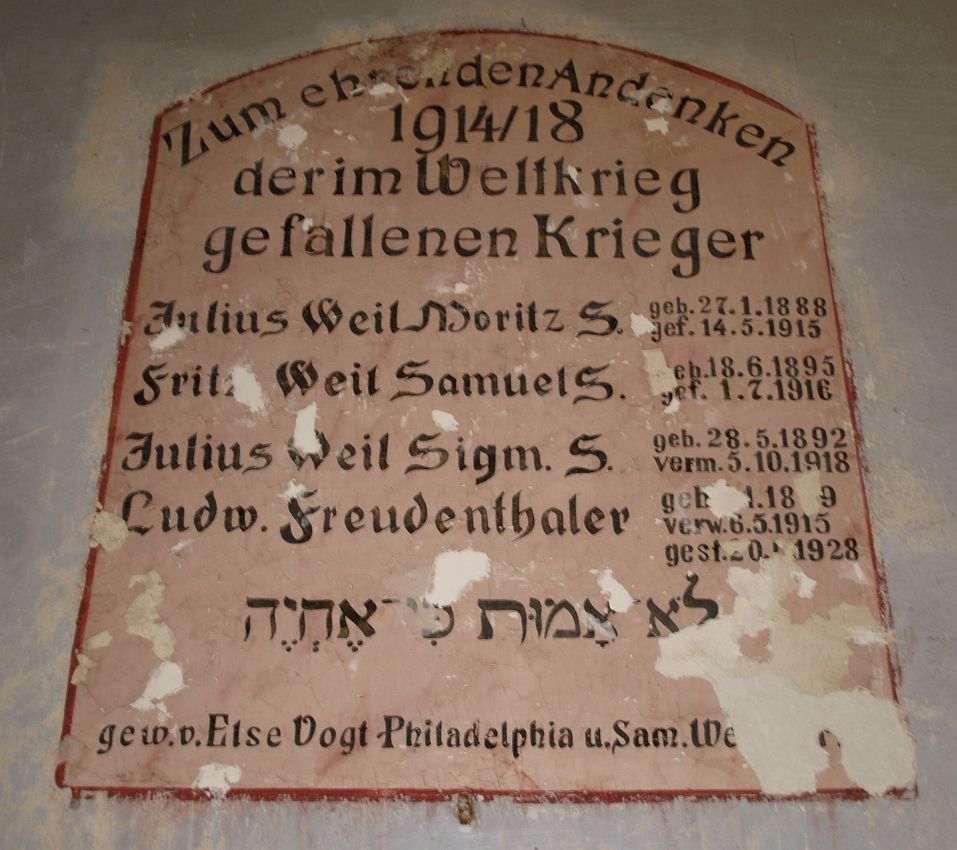 Zum ehrenden Andenken
1914/18
der im Weltkrieg
gefallenen Krieger
Julius Weil Moritz S. geb. 27.1.1888
gef. 14.5.1915
Fritz Weil Samuel S. geb. 18.6.1895
gef. 1.7.1916
Julius Weil Sigm. S. geb. 28.5.1892
verm. 5.10.1918
Ludw. Freudenthaler geb.
verw. 6.5.1915
gest. 1928
לֹא־אָמוּת כִּי־אֶהְיֶה
gew. v. Else Vogt-Philadelphia u. Sam.